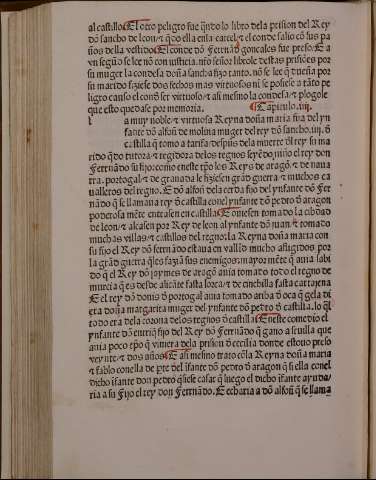 al castillo. El otro peligro fue qñdo lo libro dela prision del Rey
dõ sancho de leon / ⁊ q̃do ella en la carcel / ⁊ el conde salio cõ sus pa
ños della vestido. El conde dõ Ferrãd gonçales fue preso / E a
vn segũd se lee nõ con iusticia. nr̃o señor librole destas prisiões por
su muger la condesa doña sancha fizo tanto. nõ se lee q̃ dueña por
su marido fiziese dos fechos mas virtuosos ni se posiese a tãto pe
ligro causo el comũ ser virtuoso / ⁊ asi mesmo la condesa / ⁊ plogole
que esto quedase por memoria.
¶ Capitulo .iiij.
l a muy noble / ⁊ virtuosa Reyna doña maria fija del yn
fante dõ alfonso de molina muger del rey dõ sancho .iiij. d̃
castilla q̃ tomo a tarifa / despũs dela muerte d̃l rey su ma
rido q̃do tutora / ⁊ regidora delos regnos seyẽdo niño el rey don
Ferrnãdo su fijo como en este tp̃o los Reys de aragõ. ⁊ de naua
rra. portogal / ⁊ de granada le fiziesen grãd guerra / ⁊ muchos ca
ualleros del regno. E dõ alfonso dela cerda fijo del ynfante dõ Fer
nãdo q̃ se llamaua rey d̃ castilla con el ynfante dõ pedro d̃ aragon
poderosa mẽte entrasen en castilla. E ouiesen tomado la cibdad
de leon / ⁊ alcasen por Rey de leon al ynfante dõ juan. ⁊ tomado
muchas villas / ⁊ castillos del regno. la Reyna doña maria con
su fijo el Rey dõ ferrnãdo estaua en vall'id mucho afligidos por
la grãd guerra q̃ les fazia sus enemigos. mayor mẽte q̃ auia sabi
do q̃ el Rey dõ jaymes de aragõ auia tomado todo el regno de
murcia q̃ es desde alicãte fasta lorca / ⁊ de chinchilla fasta cartajena
E el rey dõ donis d̃ portogal auia tomado
era doña margarita muger del ynfante dõ pedro d̃ castilla. lo q̃l
todo era dela corona delos regnos d̃ castilla. E en este comedio el
ynfante dõ enrriq̃ fijo del Rey dõ Ferrnãdo q̃ gano a seuilla que
auia poco tp̃o q̃ viniera dela prision d̃ cecilia donde estouo preso
veynte / ⁊ dos años. E asi mesmo trato cõ la Reyna doña maria
⁊ fablo con ella de pte del ifante dõ pedro d̃ aragon q̃ si ella con el
dicho ifante don pedro q̃siese casar q̃ luego el dicho ifante ayuda/
ria a su fijo el rey don Ferrnãdo. E echaria a dõ alfonso q̃ se llama